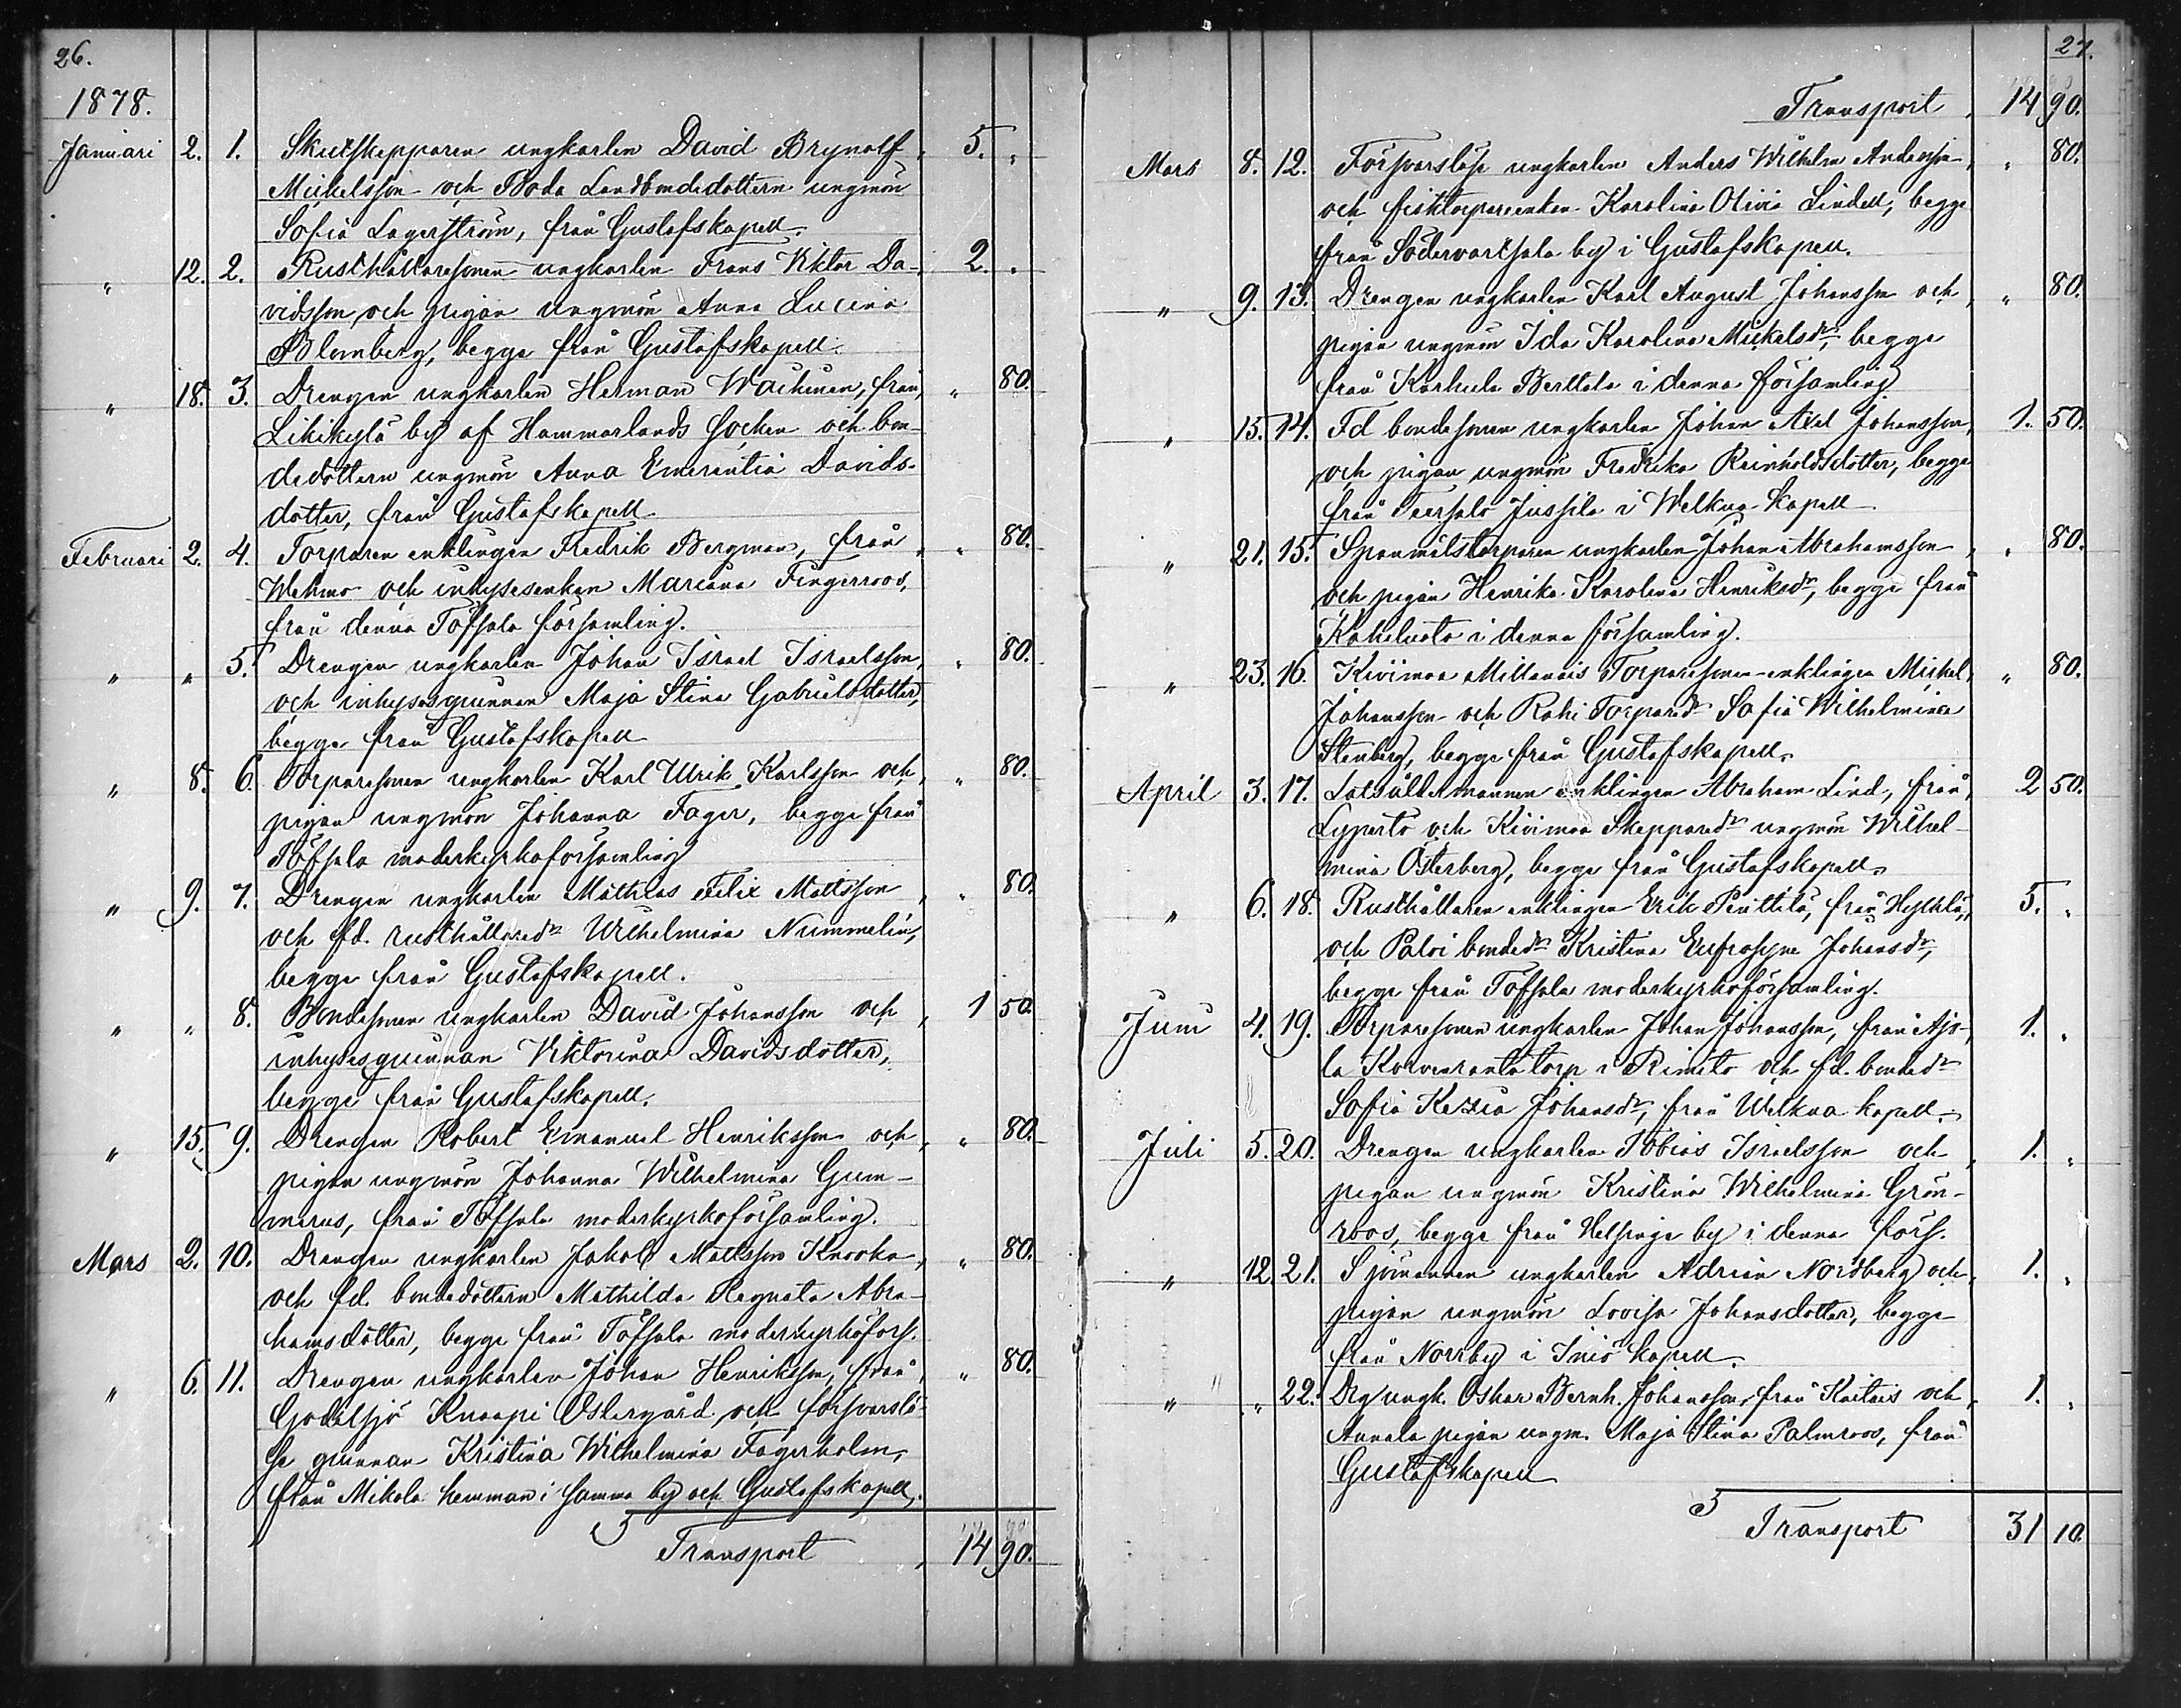 26.
1878.
Januari 2. 1. Skutskepparen ungkarlen David Brynolf 5. "
Mickelsson och Boda Landbondedottern ungmön
Sofia Lagerström, från Gustafs kapell.
" 12. 2. Rusthållaresonen ungkarlen Frans Viktor Da- 2. "
vidsson och pigan ungmön Anna Lucina
Blomberg, begge från Gustafs kapell.
" 18. 3. Drengen ungkarlen Herman Wachman, från " 80.
Likikylä by af Hammarlands socken och bon-
dedottern ungmön Anna Emerentia Davids-
dotter, från Gustafs kapell.
Februari 2. 4. Torparen enklingen Fredrik Bergman, från " 80.
Wehmo och inhysesenkan Mariana Fingerroos,
från denna Töfsala församling.
" " 5. Drengen ungkarlen Johan Israel Israelsson, " 80.
och inhysesqvinnan Maja Stina Gabrielsdotter,
begge från Gustafs kapell
" 8. 6. Torparesonen ungkarlen Karl Ulrik Karlsson och " 80.
pigan ungmön Johanna Fager, begge från
Töfsala moderkyrkoförsamling
" 9. 7. Drengen ungkarlen Mathias Felix Mattsson " 80.
och fd. rusthållaredr Wilhelmina Nummelin,
begge från Gustafs kapell.
" " 8. Bondesonen ungkarlen David Johansson och 1 50.
inhysesqvinnan Viktorina Davidsdotter,
begge från Gustafs kapell.
" 15. 9. Drengen Robert Emanuel Henriksson och " 80.
pigan ungmön Johanna Wilhelmina Gum-
merus, från Töfsala moderkyrkoförsamling.
Mars 2. 10. Drengen ungkarlen Jakob Mattsson Knooka " 80.
och fd. bondedottern Mathilda Regnata Abra-
hamsdotter, begge från Töfsala moderkyrkoförs.
" 6. 11. Drengen ungkarlen Johan Henriksson, från " 80.
Godålsjö Knaapi Östergård och försvarslö-
se qvinnan Kristina Wilhelmina Fagerholm,
från Mikola hemman i samma by och Gustafs kapell.
Transport 14 90.
27.
Transport 14 90.
Mars 8. 12. Försvarslöse ungkarlen Anders Wilhelm Andersson " 80.
och fisktorpareenkan Karolina Olivia Lindell, begge
från Södervartsala by i Gustafs kapell.
" 9. 13. Drengen ungkarlen Karl August Johansson och " 80.
pigan ungmön Ida Karolina Mickelsdr, begge
från Karhula Berttala i denna församling
" 15. 14. Fd bondesonen ungkarlen Johan Axel Johansson, 1. 50.
och pigan ungmön Fredrika Reinholdsdotter, begge
från Teersalo Jussila i Welkua kapell
" 21. 15. Spanmålstorparen ungkarlen Johan Abrahamsson " 80.
och pigan Henrika Karolina Henriksdr, begge från
Kahiluoto i denna församling.
" 23. 16. Kivimaa Millanais Torparesonen enklingen Mickel " 80.
Johansson och Rahi Torparedr Sofia Wilhelmina
Stenberg, begge från Gustafs kapell.
April 3. 17. Lotsåldermannen enklingen Abraham Lind, från 2 50.
Lyperto och Kivimaa Skepparedr ungmön Wilhel-
mina Österberg, begge från Gustafs kapell.
" 6. 18. Rusthållaren enklingen Erik Penttilä, från 5. "
och Paloi bondedr Kristina Eufrosyne Johansdr,
begge från Töfsala moderkyrkoförsamling.
Juni 4. 19. Torparesonen ungkarlen Johan Johansson, från Ajo- 1. "
la Korvenranta torp i Rimito och fd. bondedr
Sofia Kezia Johansdr, från Welkua kapell.
Juli 5. 20. Drengen ungkarlen Tobias Israelsson och 1. "
pigan ungmön Kristina Wilhelmina Grön-
roos, begge från Helsinge by i denna förs.
" 12. 21. Sjömannen ungkarlen Adrian Nordberg och 1. "
pigan ungmön Lovisa Johansdotter, begge
från Norrby i Iniö kapell.
" " 22. Drg ungk. Oskar Bernh. Johansson, från Kaitais och 1. "
Annala pigan ungm. Maja Stina Palmroos, från
Gustafs kapell
Transport 31 10.